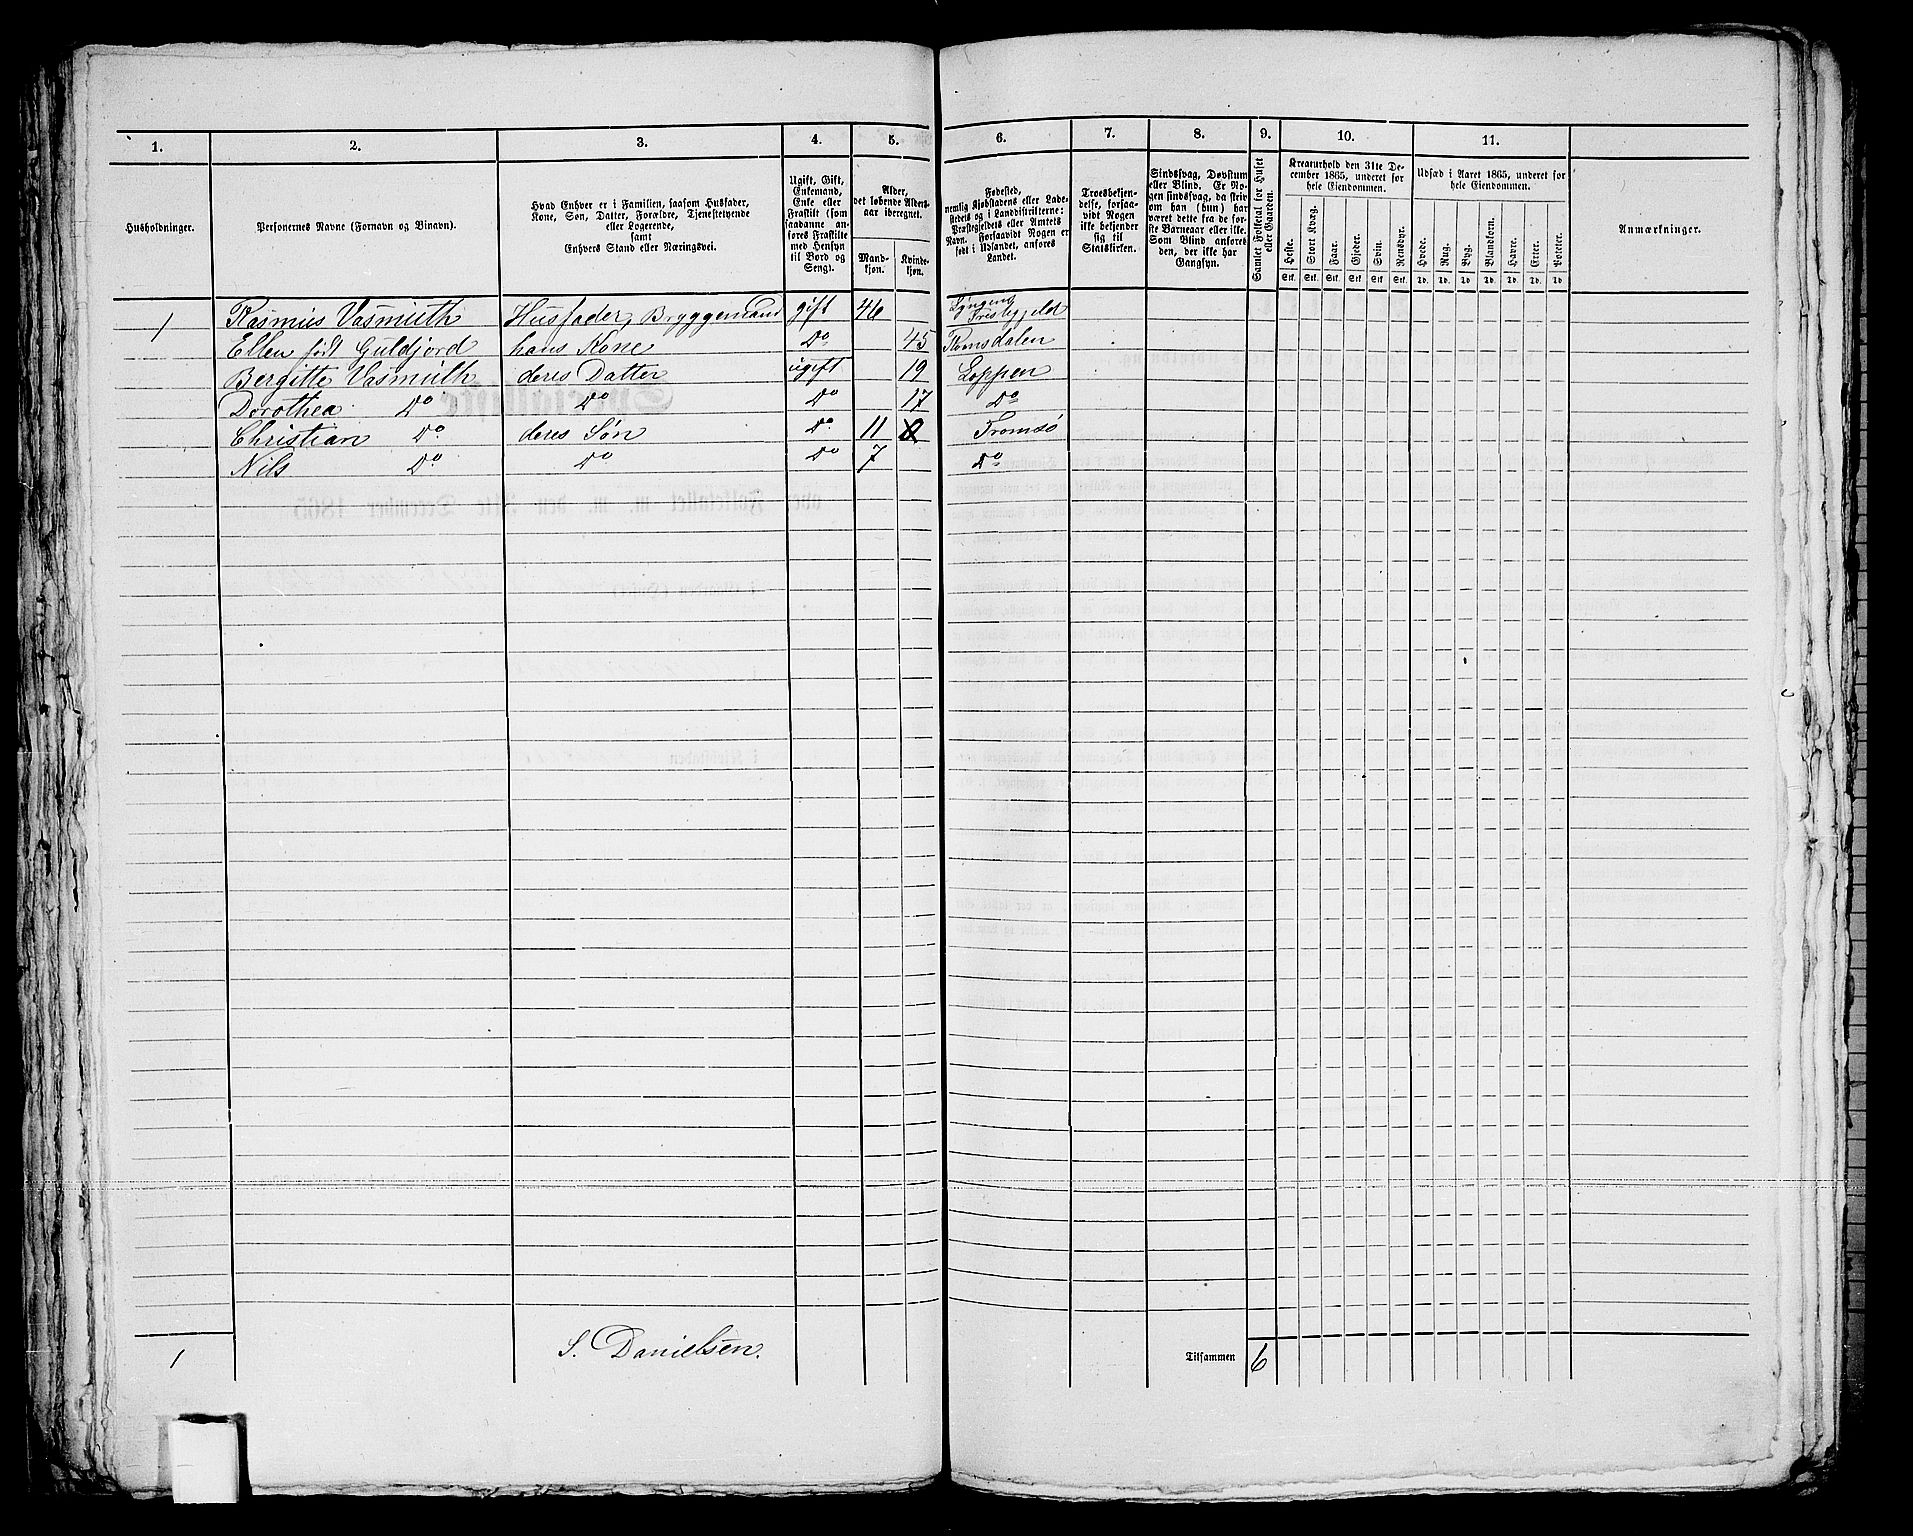 1. 2. 3. 4. 5. 6. 7. 8. 9. 10. 11.
Husholdninger.
Personernes Navne (Fornavn og Binavn).
Hvad Enhver er i Familien, saasom Husfader,
Kone, Søn, Datter, Forældre, Tjenestetyende
eller Logerende,
samt
Enhvers Stand eller Næringsvei.
Ugift, Gift,
Enkemand,
Enke eller
Fraskilt (som
saadanne an-
føres Fraskilte
med Hensyn
til Bord og
Seng).
Alder,
det løbende Alders-
aar iberegnet.
Mand-
kjøn.
Kvinde-
kjøn.
Fødested,
nemlig Kjøbstadens eller Lade-
stedets og i Landdistrikterne:
Præstegjeldets eller Amtets
Navn. Forsaavidt Nogen er
født i Udlandet, anføres
Landet.
Troesbekjen-
delse, forsaa-
vidt Nogen
ikke bekjender
sig til
Statskirken.
Sindssvag, Døvstum
eller Blind. Er No-
gen sindssvag, da skriv
om han (hun) har
været dette fra de før-
ste Barneaar eller ikke.
Som Blind anføres
den, der ikke har
Gangsyn.
Samlet Folketal for Huset
eller Gaarden.
Kreaturhold den 31te De-
cember 1865, underet for
hele Eiendommen.
Heste. Stort Kvæg. Faar. Gjeder. Svin. Rensdyr.
Stk. Stk. Stk. Stk. Stk. Stk.
Udsæd i Aaret 1865, underet for
hele Eiendommen.
Hvede. Rug. Byg. Blandkorn. Havre. Erter. Poteter.
Td. Td. Td. Td. Td. Td. Td.
Anmærkninger.
1 Rasmus Vasmuth Husfader, Bryggemand gift 46 Lyngens Prestegjeld
Ellen født Guldfjord hans Kone Do 45 Romsdalen
Bergitte Vasmuth deres Datter ugift 19 Loppen
Dorothea Do Do Do 17 Do
Christian Do deres Søn Do 11 Tromsø
Nils Do Do Do 7 Do
1 S. Danielsen. Tilsammen 6